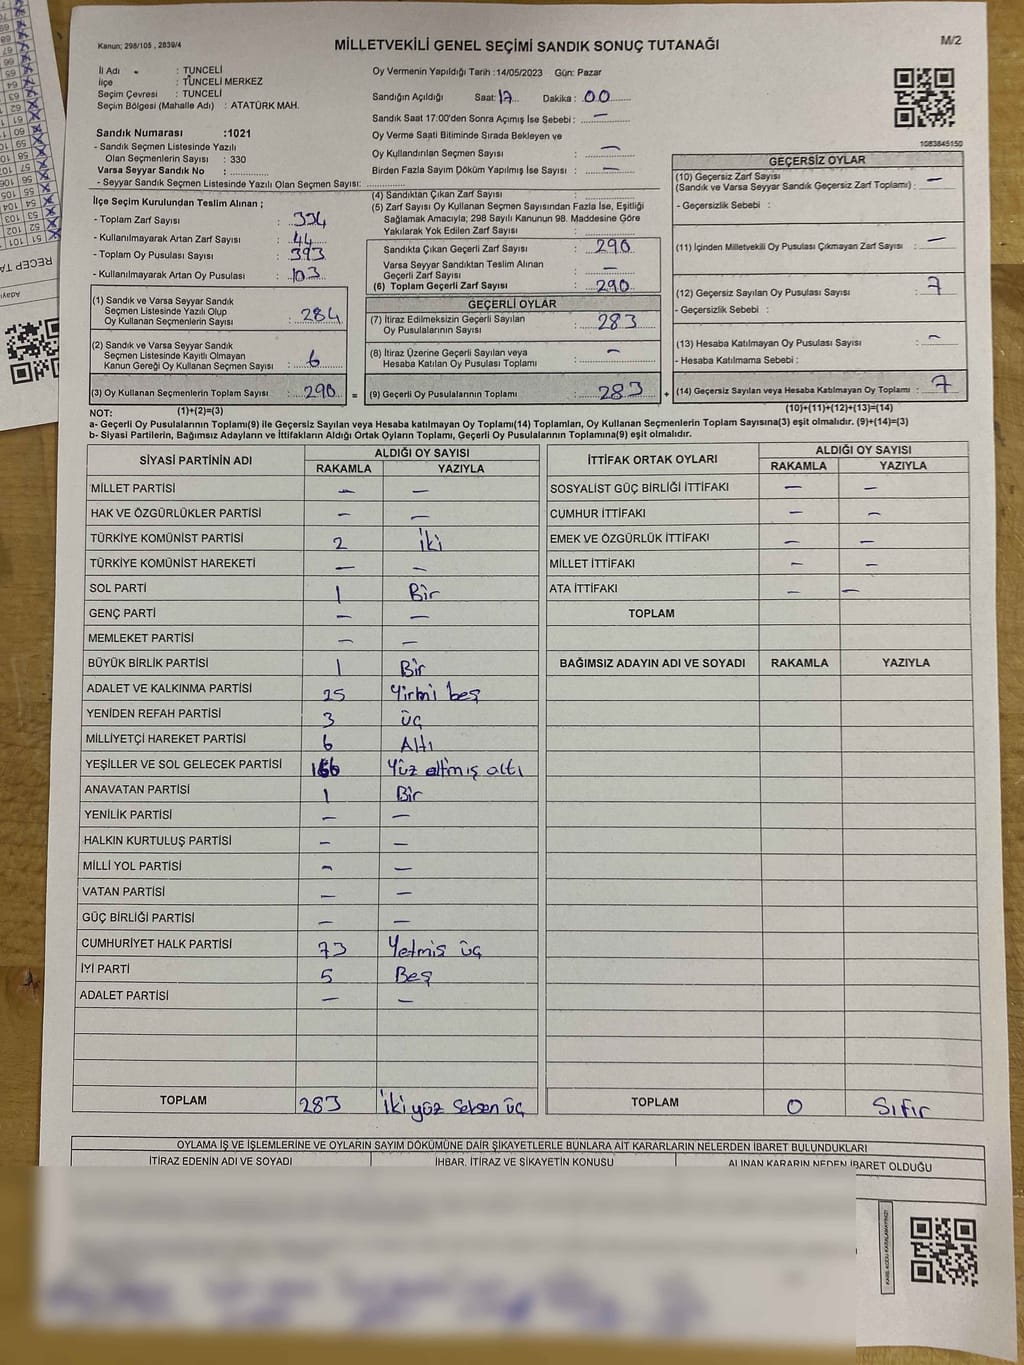 Kanun; 298/105 , 2839/4
MİLLETVEKİLİ GENEL SEÇİMİ SANDIK SONUÇ TUTANAĞI
M/2
İl Adı : TUNCELİ
İlçe : TUNCELİ MERKEZ
Seçim Çevresi : TUNCELİ
Seçim Bölgesi (Mahalle Adı) : ATATÜRK MAH.
Oy Vermenin Yapıldığı Tarih :14/05/2023 Gün: Pazar
Sandığın Açıldığı Saat: 17 Dakika : 00
Sandık Saat 17:00'den Sonra Açımış İse Sebebi : —
Oy Verme Saati Bitiminde Sırada Bekleyen ve
Oy Kullandırılan Seçmen Sayısı : —
Birden Fazla Sayım Döküm Yapılmış İse Sayısı : —
1083845150
Sandık Numarası :1021
- Sandık Seçmen Listesinde Yazılı
Olan Seçmenlerin Sayısı : 330
Varsa Seyyar Sandık No :
- Seyyar Sandık Seçmen Listesinde Yazılı Olan Seçmen Sayısı:
İlçe Seçim Kurulundan Teslim Alınan ;
- Toplam Zarf Sayısı : 334
- Kullanılmayarak Artan Zarf Sayısı : 44
- Toplam Oy Pusulası Sayısı : 393
- Kullanılmayarak Artan Oy Pusulası : 103
(1) Sandık ve Varsa Seyyar Sandık
Seçmen Listesinde Yazılı Olup
Oy Kullanan Seçmenlerin Sayısı : 284
(2) Sandık ve Varsa Seyyar Sandık
Seçmen Listesinde Kayıtlı Olmayan
Kanun Gereği Oy Kullanan Seçmen Sayısı : 6
(3) Oy Kullanan Seçmenlerin Toplam Sayısı : 290 =
(4) Sandıktan Çıkan Zarf Sayısı :
(5) Zarf Sayısı Oy Kullanan Seçmen Sayısından Fazla İse, Eşitliği
Sağlamak Amacıyla; 298 Sayılı Kanunun 98. Maddesine Göre
Yakılarak Yok Edilen Zarf Sayısı :
Sandıkta Çıkan Geçerli Zarf Sayısı : 290
Varsa Seyyar Sandıktan Teslim Alınan
Geçerli Zarf Sayısı : —
(6) Toplam Geçerli Zarf Sayısı : 290
GEÇERLİ OYLAR
(7) İtiraz Edilmeksizin Geçerli Sayılan
Oy Pusulalarının Sayısı : 283
(8) İtiraz Üzerine Geçerli Sayılan veya
Hesaba Katılan Oy Pusulası Toplamı : —
(9) Geçerli Oy Pusulalarının Toplamı : 283 +
GEÇERSİZ OYLAR
(10) Geçersiz Zarf Sayısı
(Sandık ve Varsa Seyyar Sandık Geçersiz Zarf Toplamı) : —
- Geçersizlik Sebebi :
(11) İçinden Milletvekili Oy Pusulası Çıkmayan Zarf Sayısı : —
(12) Geçersiz Sayılan Oy Pusulası Sayısı : 7
- Geçersizlik Sebebi :
(13) Hesaba Katılmayan Oy Pusulası Sayısı : —
- Hesaba Katılmama Sebebi :
(14) Geçersiz Sayılan veya Hesaba Katılmayan Oy Toplamı : 7
NOT: (1)+(2)=(3) (10)+(11)+(12)+(13)=(14)
a- Geçerli Oy Pusulalarının Toplamı(9) ile Geçersiz Sayılan veya Hesaba katılmayan Oy Toplamı(14) Toplamları, Oy Kullanan Seçmenlerin Toplam Sayısına(3) eşit olmalıdır. (9)+(14)=(3)
b- Siyasi Partilerin, Bağımsız Adayların ve İttifakların Aldığı Ortak Oyların Toplamı, Geçerli Oy Pusulalarının Toplamına(9) eşit olmalıdır.
SİYASİ PARTİNİN ADI ALDIĞI OY SAYISI
RAKAMLA YAZIYLA
MİLLET PARTİSİ — —
HAK VE ÖZGÜRLÜKLER PARTİSİ — —
TÜRKİYE KOMÜNİST PARTİSİ 2 İki
TÜRKİYE KOMÜNİST HAREKETİ — —
SOL PARTİ 1 Bir
GENÇ PARTİ — —
MEMLEKET PARTİSİ — —
BÜYÜK BİRLİK PARTİSİ 1 Bir
ADALET VE KALKINMA PARTİSİ 25 Yirmi beş
YENİDEN REFAH PARTİSİ 3 üç
MİLLİYETÇİ HAREKET PARTİSİ 6 Altı
YEŞİLLER VE SOL GELECEK PARTİSİ 166 Yüz altmış altı
ANAVATAN PARTİSİ 1 Bir
YENİLİK PARTİSİ — —
HALKIN KURTULUŞ PARTİSİ — —
MİLLİ YOL PARTİSİ — —
VATAN PARTİSİ — —
GÜÇ BİRLİĞİ PARTİSİ — —
CUMHURİYET HALK PARTİSİ 73 Yetmiş üç
İYİ PARTİ 5 Beş
ADALET PARTİSİ — —
TOPLAM 283 İki yüz Seksen üç
İTTİFAK ORTAK OYLARI ALDIĞI OY SAYISI
RAKAMLA YAZIYLA
SOSYALİST GÜÇ BİRLİĞİ İTTİFAKI — —
CUMHUR İTTİFAKI — —
EMEK VE ÖZGÜRLÜK İTTİFAKI — —
MİLLET İTTİFAKI — —
ATA İTTİFAKI — —
TOPLAM
BAĞIMSIZ ADAYIN ADI VE SOYADI RAKAMLA YAZIYLA
TOPLAM 0 Sıfır
OYLAMA İŞ VE İŞLEMLERİNE VE OYLARIN SAYIM DÖKÜMÜNE DAİR ŞİKAYETLERLE BUNLARA AİT KARARLARIN NELERDEN İBARET BULUNDUKLARI
İTİRAZ EDENİN ADI VE SOYADI İHBAR, İTİRAZ VE ŞİKAYETİN KONUSU ALINAN KARARIN NEDEN İBARET OLDUĞU
RECEP TA